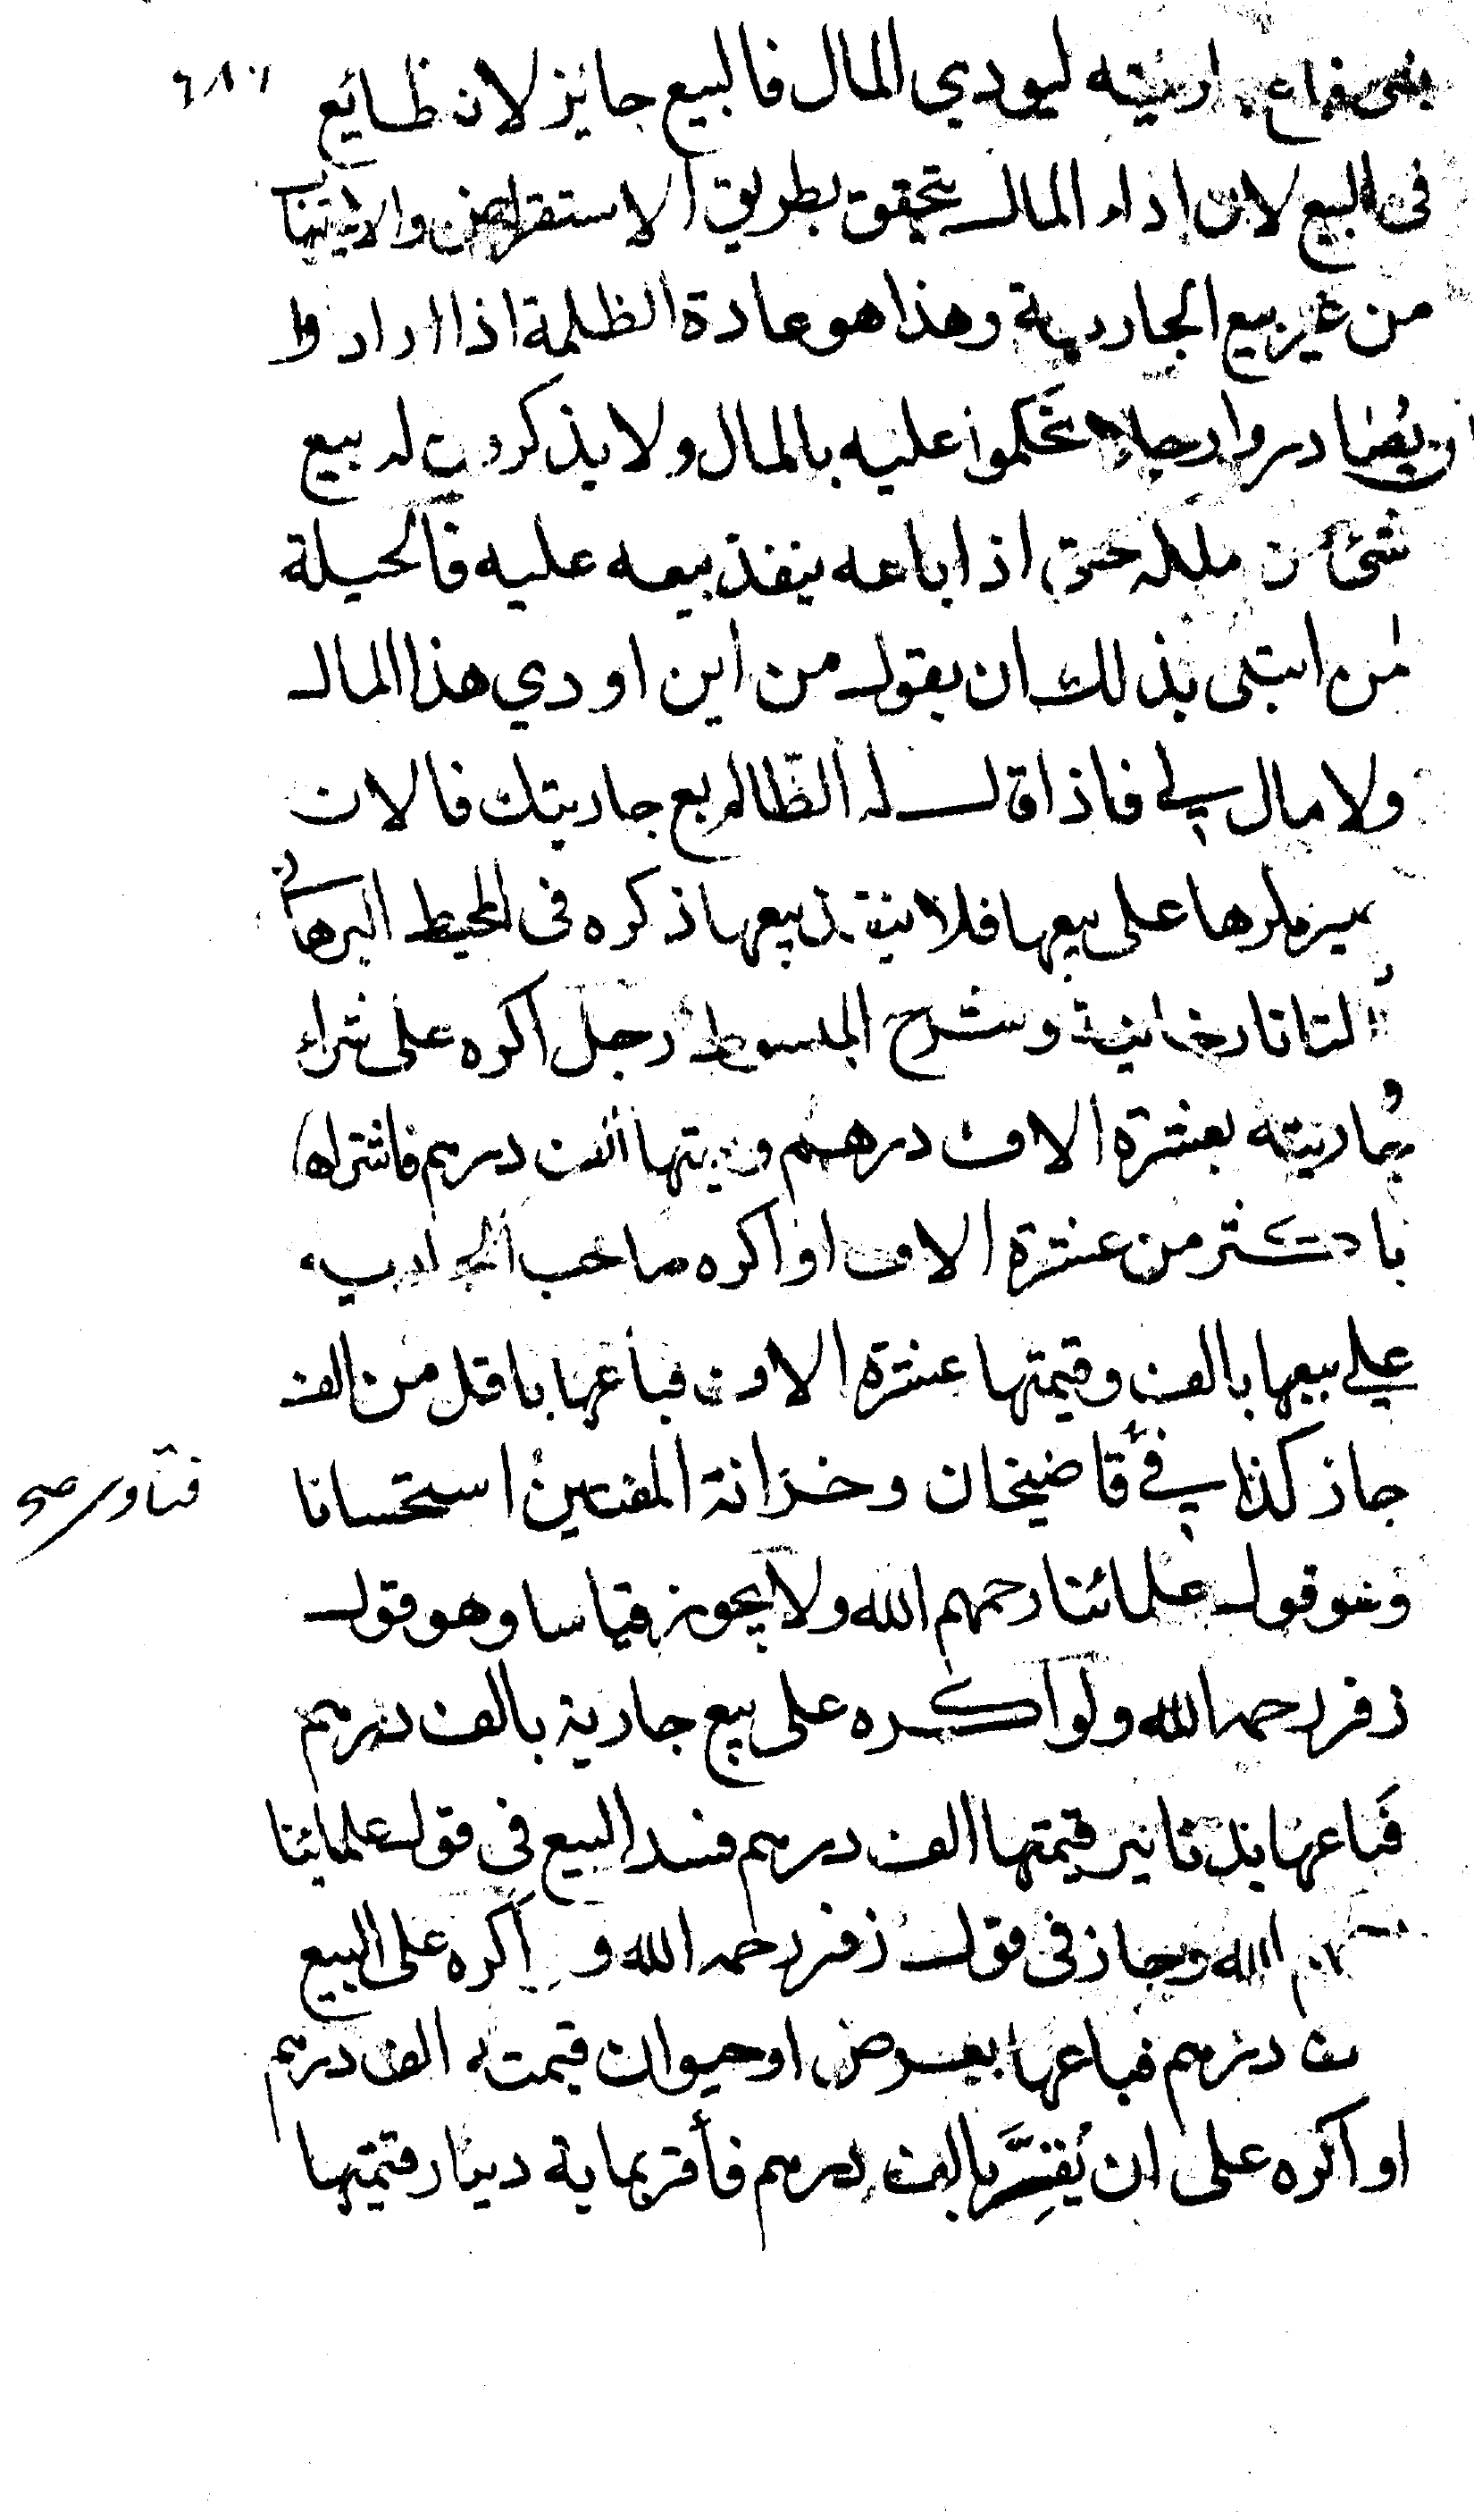 فباع جاريته ليودي المال فالبيع جايز لانه طايع
فى البيع لان اداء المال يتحقق بطريق الاستقراض والاتيهاب
من غير بيع الجارية وهذا هو عادة الظلمة اذا ارادوا
ان يصادروا رجلا تحكموا عليه بالمال ولا يذكرون له بيع
شئ من ملكه حتى اذا باعه ينفذ بيعه عليه فالحيلة
لمن ابتلى بذلك ان يقول من اين اودي هذا المال
ولا مال لي فاذا قال له الظالم بع جاريتك فالان
يصير مكرها على بيعها فلا ينفذ بيعها ذكره فى المحيط البرهاني
التاتارخانية وشرح المبسوط رجل اكره على شراء
جاريته بعشرة الاف درهم وقيمتها الف درهم فاشتراها
باكثر من عشرة الاف او اكره صاحب الجارية
على بيعها بالف وقيمتها عشرة الاف فباعها باقل من الف
جاز كذا في قاضيخان وخزانة المفتين استحسانا
فتاوى صح
وهو قول علمائنا رحمهم الله ولا يجوز قياسا وهو قول
زفر رحمه الله ولو اكره على بيع جارية بالف درهم
فباعها بدنانير قيمتها الف درهم فسد البيع في قول علمائنا
رحمهم الله وجاز فى قول زفر رحمه الله و اكره على البيع
ف درهم فباعها بعرض او حيوان قيمته الف درهم
او اكره على ان يقر بالف درهم فأقر بماية دينار قيمتها